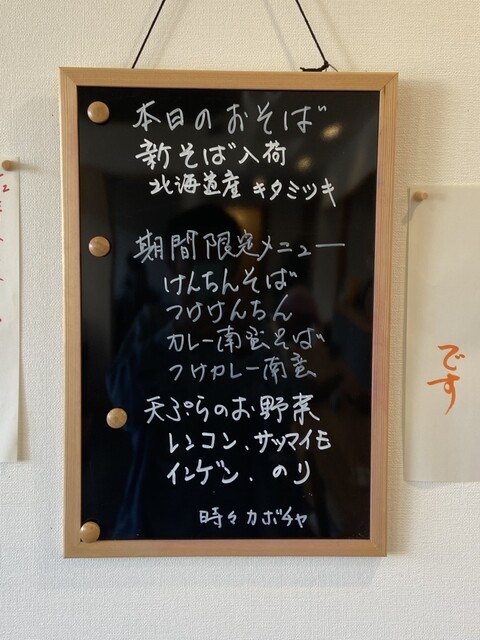 本日のおそば
新そば入荷
北海道産 キタミツキ
期間限定メニュー
けんちんそば
つけけんちん
カレー南蛮そば
つけカレー南蛮
天ぷらのお野菜
レンコン、サツマイモ
インゲン、のり
時々カボチャ
です